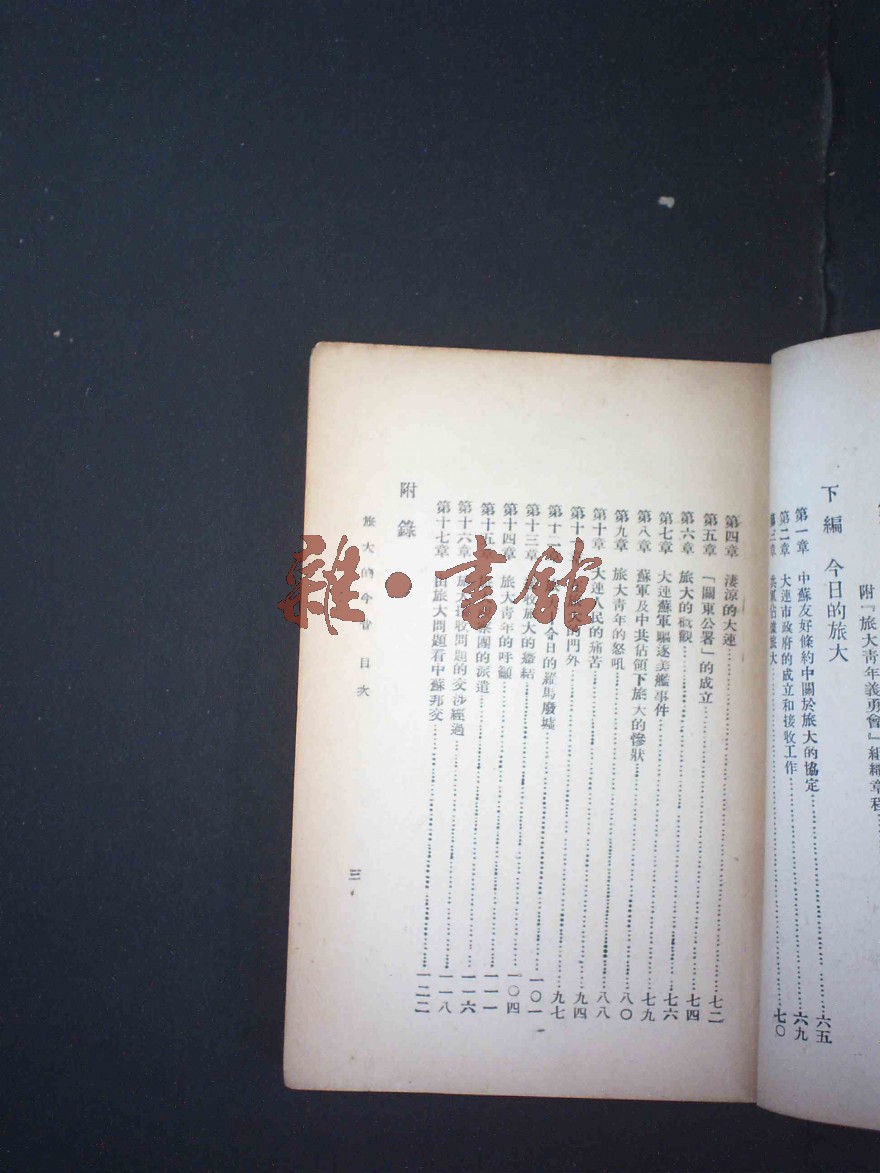 附『旅大青年義勇會』組織章程
下編 今日的旅大
第一章 中蘇友好條約中關於旅大的協定 六五
第二章 大連市政府的成立和接收工作 六九
第三章 共軍佔據旅大 七〇
第四章 淒涼的大連 七二
第五章 「關東公署」的成立 七四
第六章 旅大的概觀 七六
第七章 大連蘇軍驅逐美艦事件 七九
第八章 蘇軍及中共佔領下旅大的慘狀 八〇
第九章 旅大青年的怒吼 八八
第十章 大連人民的痛苦 九四
第十一章 的門外 九七
第十二章 今日的羅馬廢墟 一〇一
第十三章 接收旅大的癥結 一〇四
第十四章 旅大青年的呼籲 一一一
第十五章 團的派遣 一一六
第十六章 旅大接收問題的交涉經過 一一八
第十七章 由旅大問題看中蘇邦交 一二二
附錄
旅大的今昔 目次
三
雜·書館